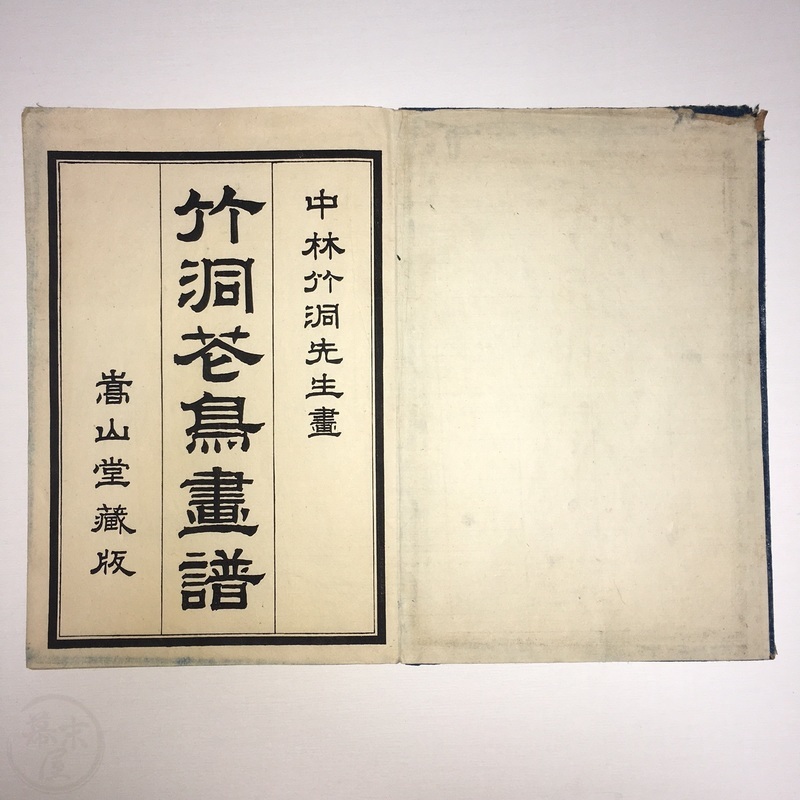 中林竹洞先生畫
竹洞花鳥畫譜
嵩山堂藏版
幕末屋